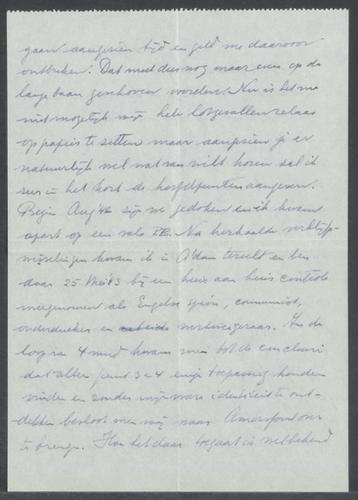 gaan aangezien tijd en geld me daarvoor
ontbreken. Dat moet dus nog maar eens op de
lange baan geschoven worden. Nu is het me
niet mogelijk mijn hele lotgevallen relaas
op papier te zetten maar aangezien je er
natuurlijk wel wat van wilt horen zal ik
eens in het kort de hoofdpunten aangeven.
Begin Aug '42 zijn we gedoken en ik kwam
apart op een valse P.B. Na herhaalde verblijfs-
wijzigingen kwam ik in A'dam terecht en ben
daar 25 Mei '43 bij een huis aan huis controle
meegenomen als Engelse spion, communist,
onderduiker en verdwenen. Na de
loop van 4 mnd kwam men tot de conclusie
dat alleen punt 3 en 4 enige toepassing konden
vinden en zonder mijn ware identiteit te ont-
dekken besloot men mij naar Amersfoort over
te brengen. Hoe het daar toegaat is welbekend